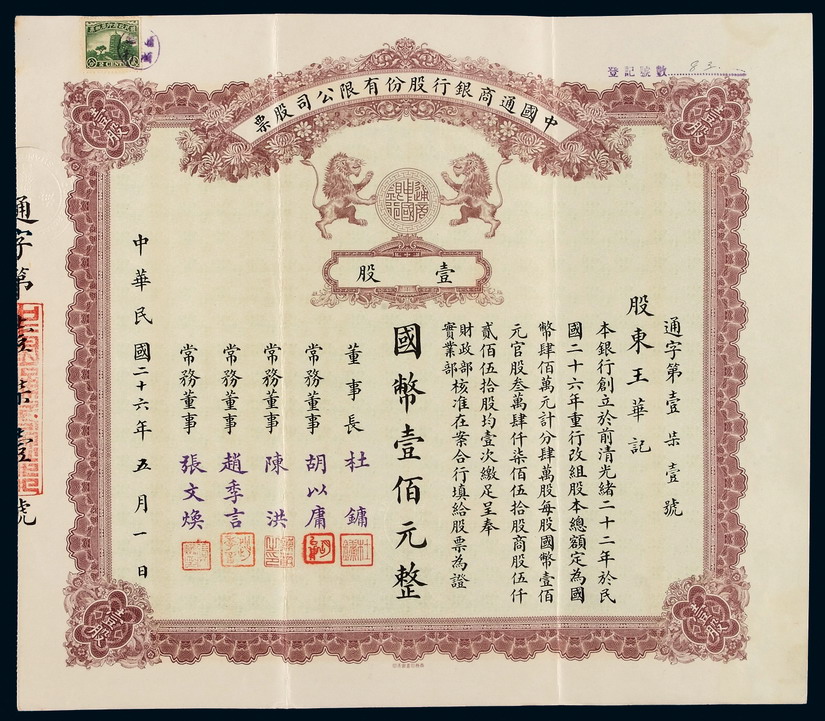 登記號數 83
中國通商銀行股份有限公司股票
壹股
通字第壹柒壹號
股東王華記
本銀行創立於前清光緒二十二年於民
國二十六年重行改組股本總額定為國
幣肆佰萬元計分肆萬股每股國幣壹佰
元官股叁萬肆仟柒佰伍拾股商股伍仟
貳佰伍拾股均壹次繳足呈奉
財政部實業部核准在案合行填給股票為證
國幣壹佰元整
董事長 杜鏞
常務董事 胡以庸
常務董事 陳洪
常務董事 趙季言
常務董事 張文煥
中華民國二十六年五月一日
壹股
壹股
壹股
壹股